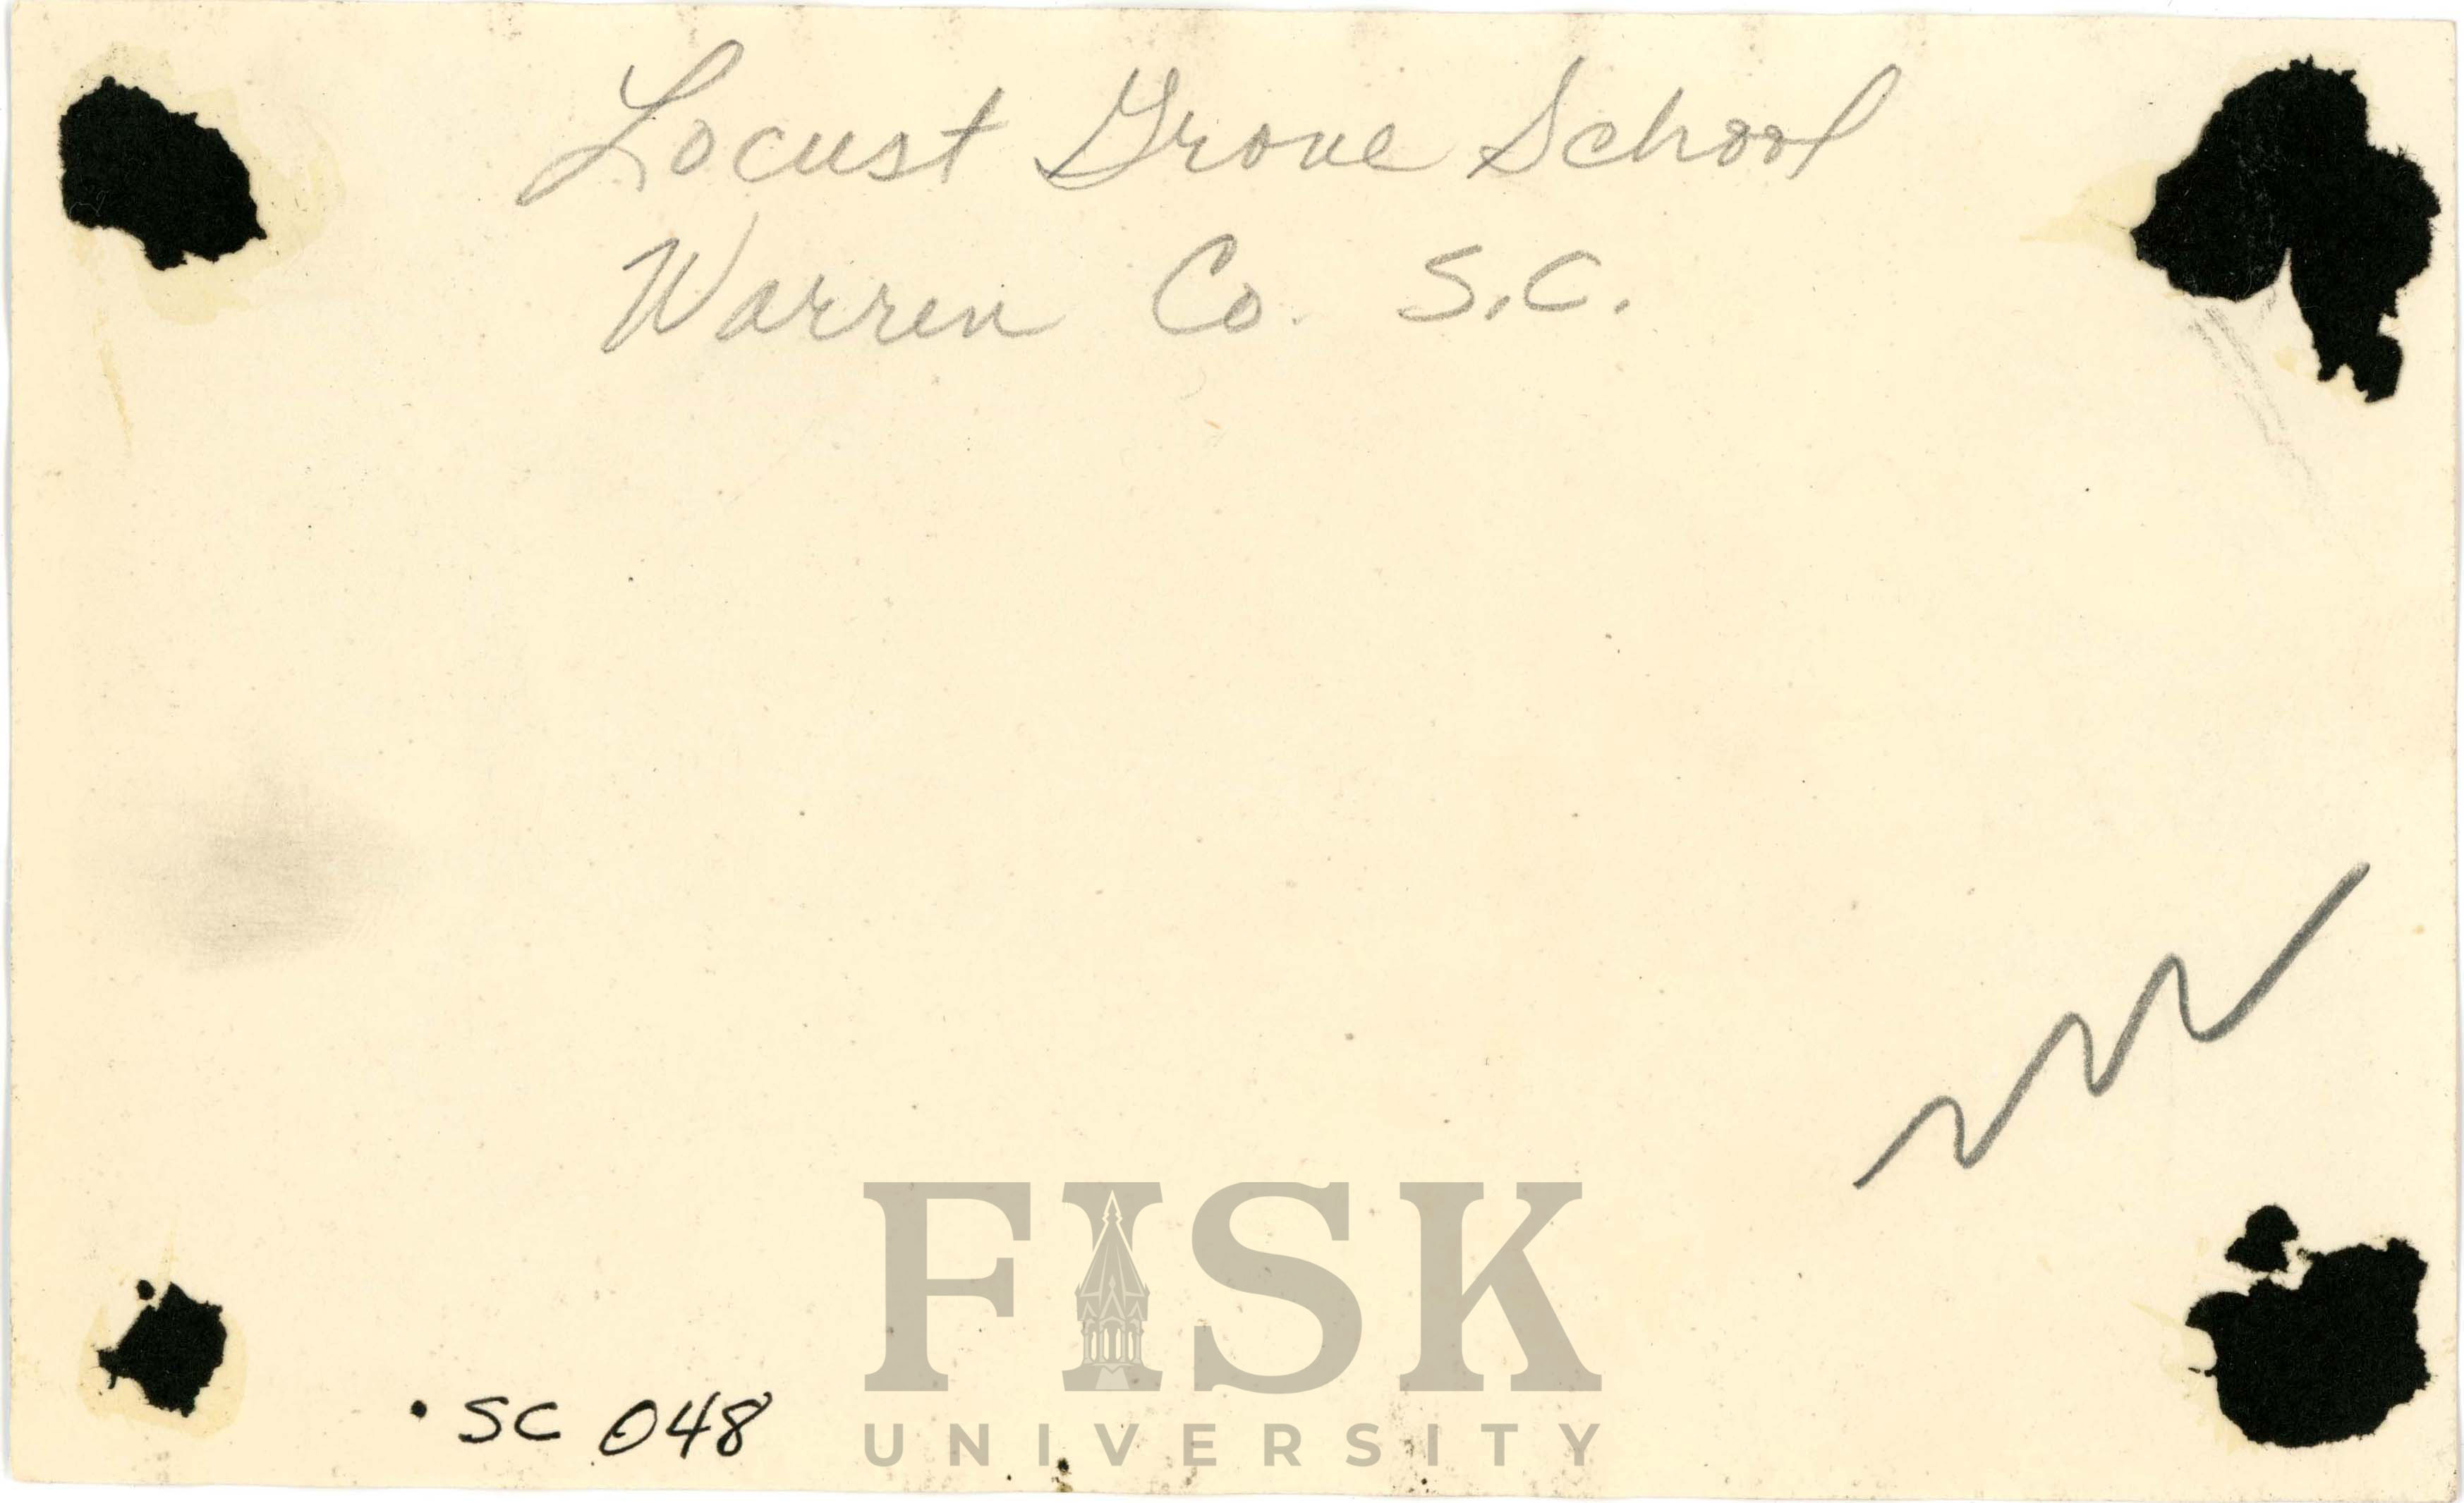 Locust Grove School
Warren Co. S.C.
. SC 048
FISK
UNIVERSITY